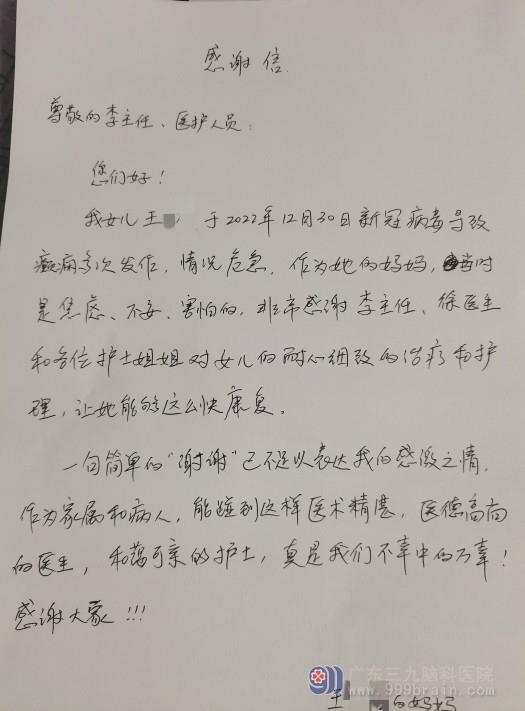 感谢信.
尊敬的李主任、医护人员:
您们好!
我女儿王 于2022年12月30日新冠病毒导致
癫痫多次发作,情况危急,作为她的妈妈,当时
是焦虑、不安、害怕的,非常感谢李主任、徐医生
和各位护士姐姐对女儿的耐心细致的治疗和护
理,让她能够这么快康复。
一句简单的“谢谢”已不足以表达我的感激之情,
作为家属和病人,能碰到这样医术精湛,医德高尚
的医生,和蔼可亲的护士,真是我们不幸中的万幸!
感谢大家!!!
广东三九脑科医院
www.999brain.com
王 的妈妈